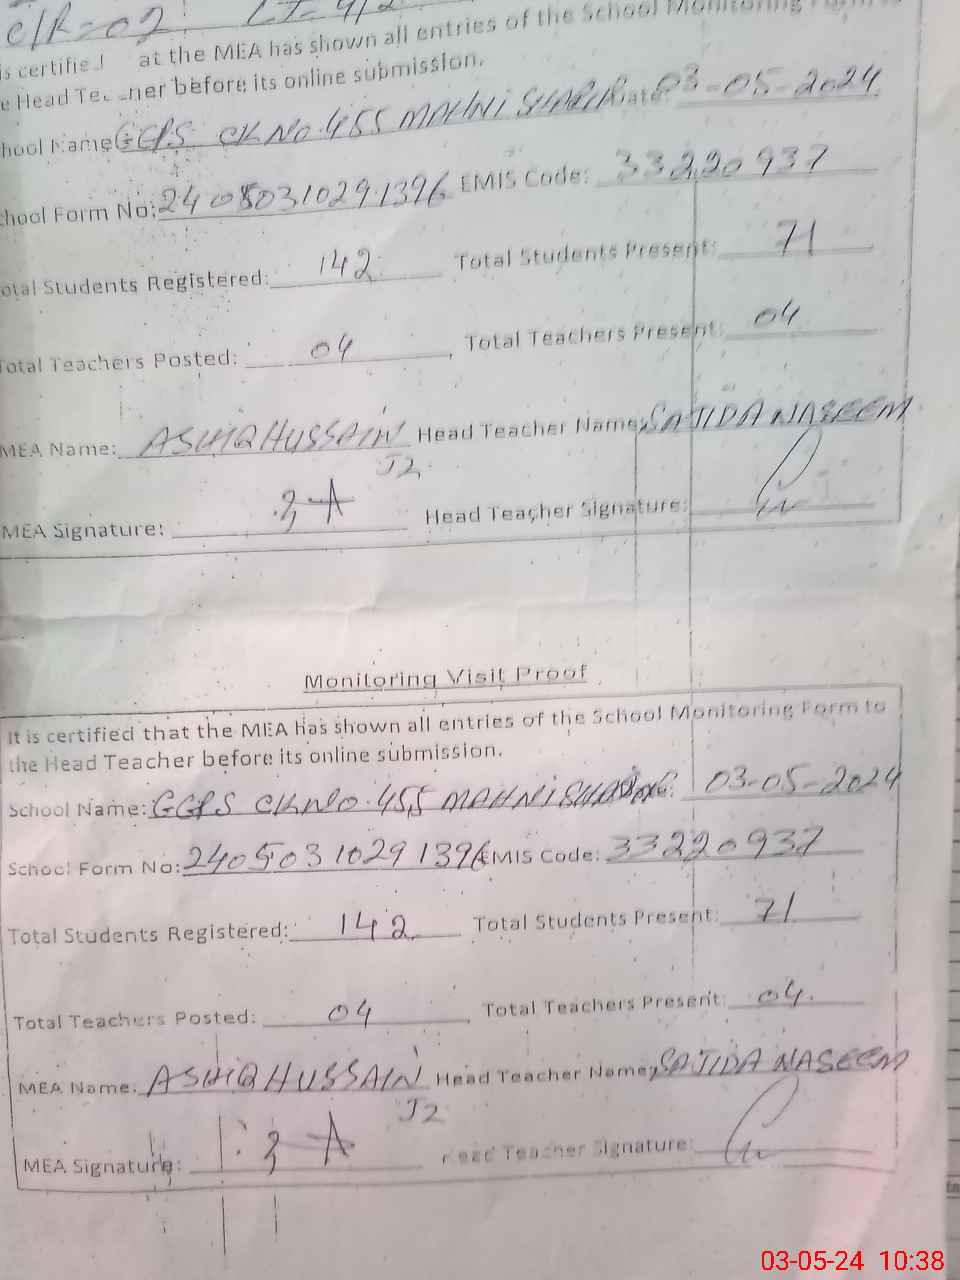 C/R=02
is certified at the MEA has shown all entries of the School Monitoring Form to
e Head Teacher before its online submission.
hool Name GGPS CK NO.455 MAHNI SHARIF Date: 03-05-2024
chool Form No: 24050310291396 EMIS Code: 33220937
otal Students Registered: 142 Total Students Present: 71
Total Teachers Posted: 04, Total Teachers Present: 04
MEA Name: ASHIQ HUSSAIN Head Teacher Name: SAJIDA NASEEM
J2
MEA Signature: Head Teacher Signature:
Monitoring Visit Proof
It is certified that the MEA has shown all entries of the School Monitoring Form to
the Head Teacher before its online submission.
School Name: GGPS CK NO.455 MAHNI 03-05-2024
School Form No: 24050310291396 EMIS Code: 33220937
Total Students Registered: 142 Total Students Present: 71
Total Teachers Posted: 04, Total Teachers Present: 04.
MEA Name: ASHIQ HUSSAIN Head Teacher Name: SAJIDA NASEEM
J2
MEA Signature: Head Teacher Signature:
03-05-24 10:38